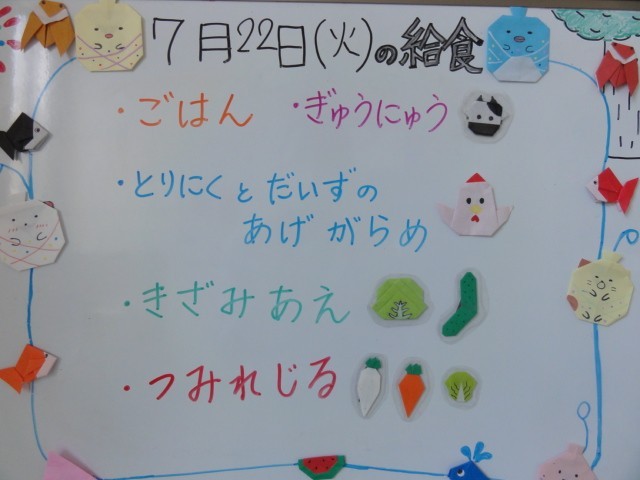 7月22日(火)の給食
・ごはん ・ぎゅうにゅう
・とりにくとだいずの
あげがらめ
・きざみあえ
・つみれじる